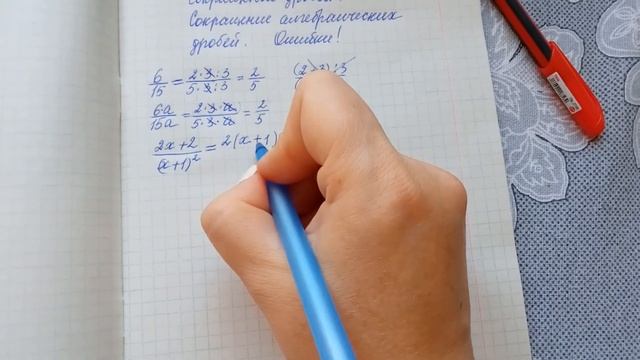 Сокращение алгебраических
дробей. Ошибки!
6/15 = 2·3:3/5·3:3 = 2/5
6·a/15a = 2·3·a/5·3·a = 2/5
2x+2/(x+1)² = 2(x+1)